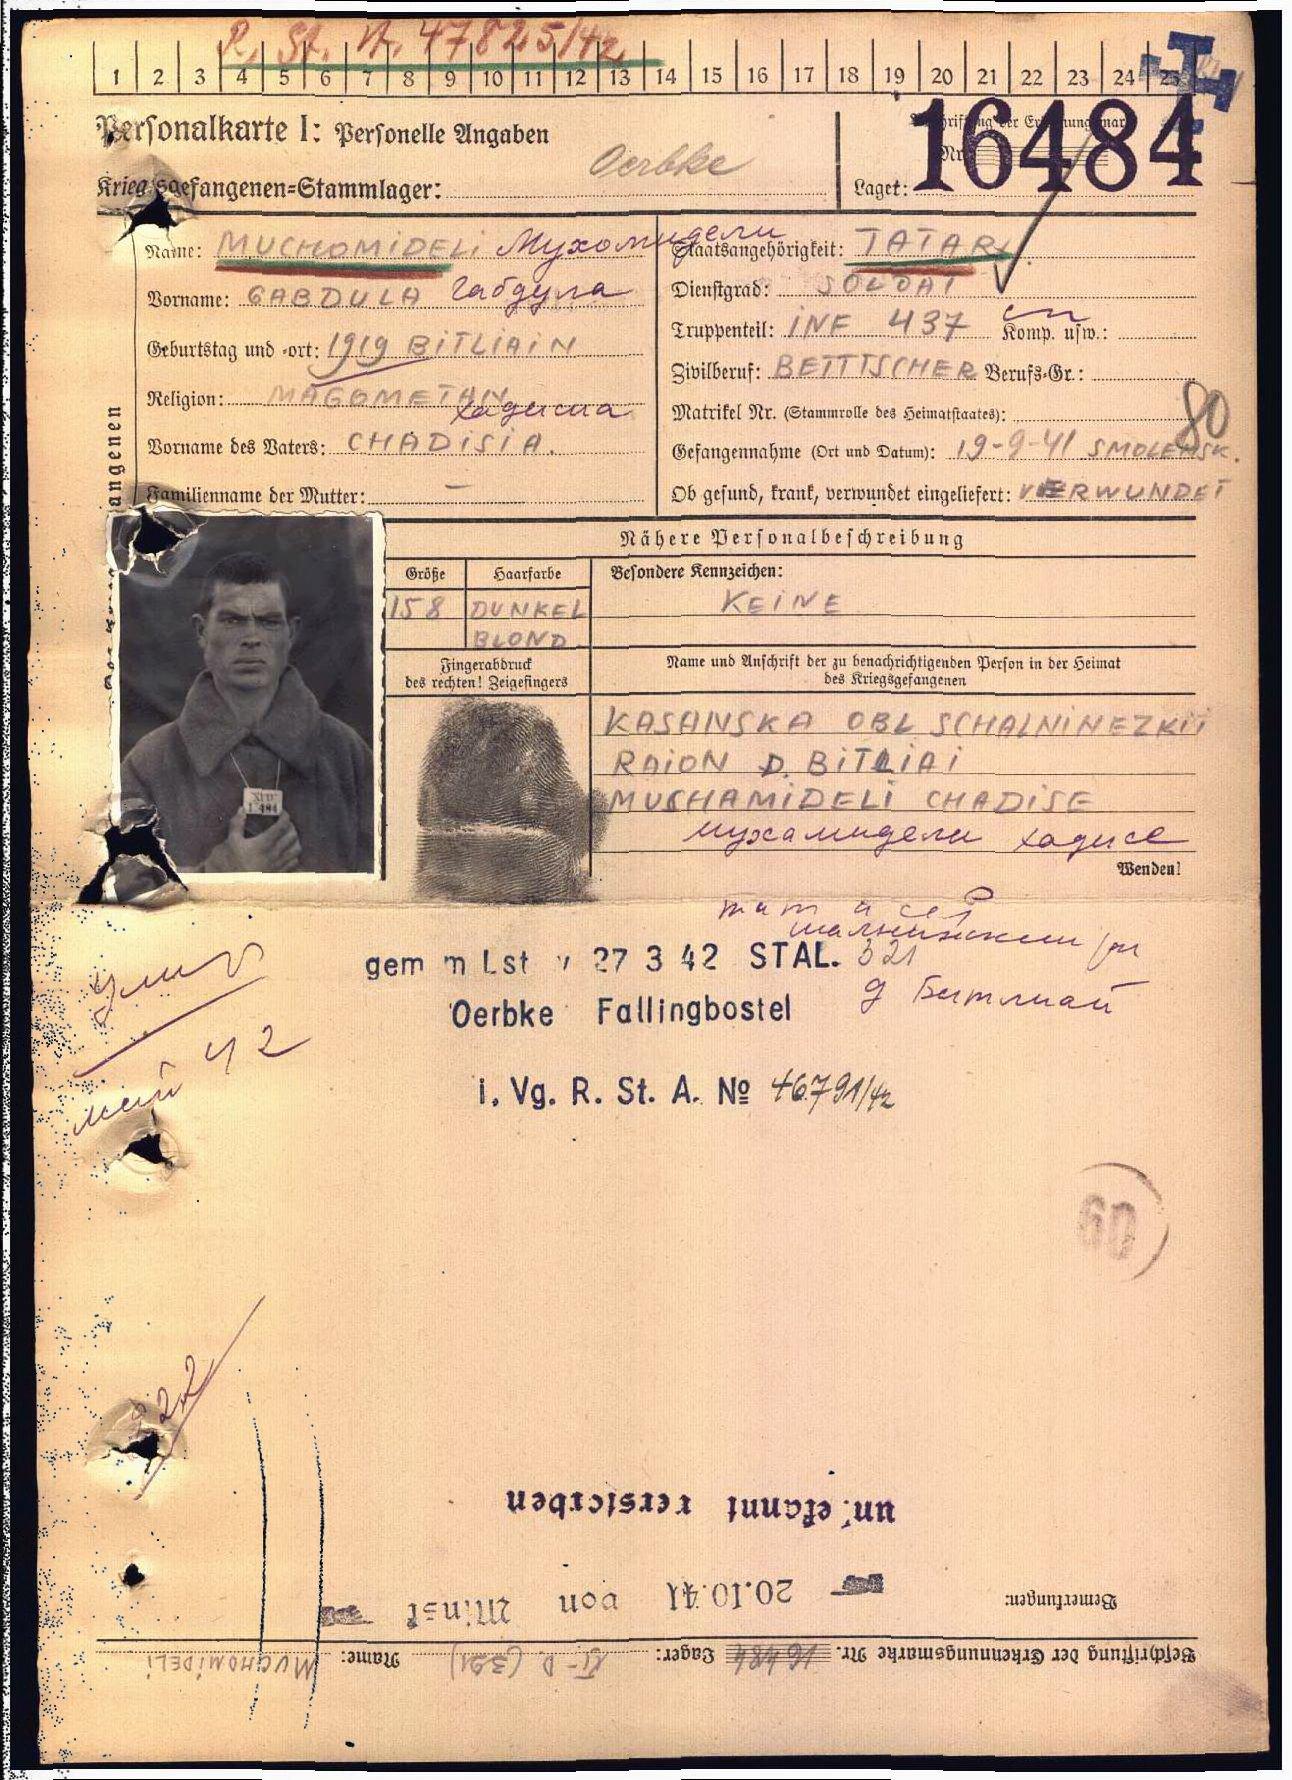 R. St. A. 47825/42
1 2 3 4 5 6 7 8 9 10 11 12 13 14 15 16 17 18 19 20 21 22 23 24 25
Personalkarte I: Personelle Angaben
Kriegsgefangenen=Stammlager: Oerbke
Nr. 16484
Lager:
Name: MUCHOMIDELI Мухомидели
Vorname: GABDULA Габдула
Geburtstag und -ort: 1919 BITLIAIN
Religion: MAGOMETAN
Хадисиа
Vorname des Vaters: CHADISIA.
Familienname der Mutter: —
Staatsangehörigkeit: TATAR
Dienstgrad: SOLDAT
Truppenteil: INF 437 Komp. usw.:
Zivilberuf: BETTTSCHER Berufs-Gr.:
Matrikel Nr. (Stammrolle des Heimatstaates):
80
Gefangennahme (Ort und Datum): 19-9-41 SMOLENSK.
Ob gesund, krank, verwundet eingeliefert: VERWUNDET
angenen
Nähere Personalbeschreibung
Größe Haarfarbe Besondere Kennzeichen:
158 DUNKEL BLOND KEINE
Fingerabdruck des rechten! Zeigefingers
Name und Anschrift der zu benachrichtigenden Person in der Heimat
des Kriegsgefangenen
KASANSKA OBL SCHALNINEZKII
RAION D. BITLIAI
MUCHAMIDELI CHADISE
мухамидели хадисе
Wenden!
gem m Lst v 27 3 42 STAL. 321
Oerbke Fallingbostel
д Битлиай
умер
май 42
i. Vg. R. St. A. № 46791/42
60
322
un ekannt verstorben
20.10.41 von Minsk
Bemerkungen:
Beschriftung der Erkennungsmarke Nr. 16484 Lager: XI-D (321) Name: MUCHOMIDELI